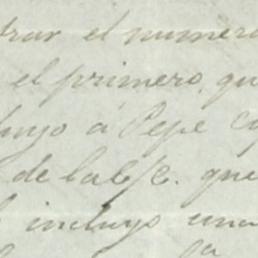 trar el numero
el primero, que
luyo a Pepe
de la c/c. que
incluyo una